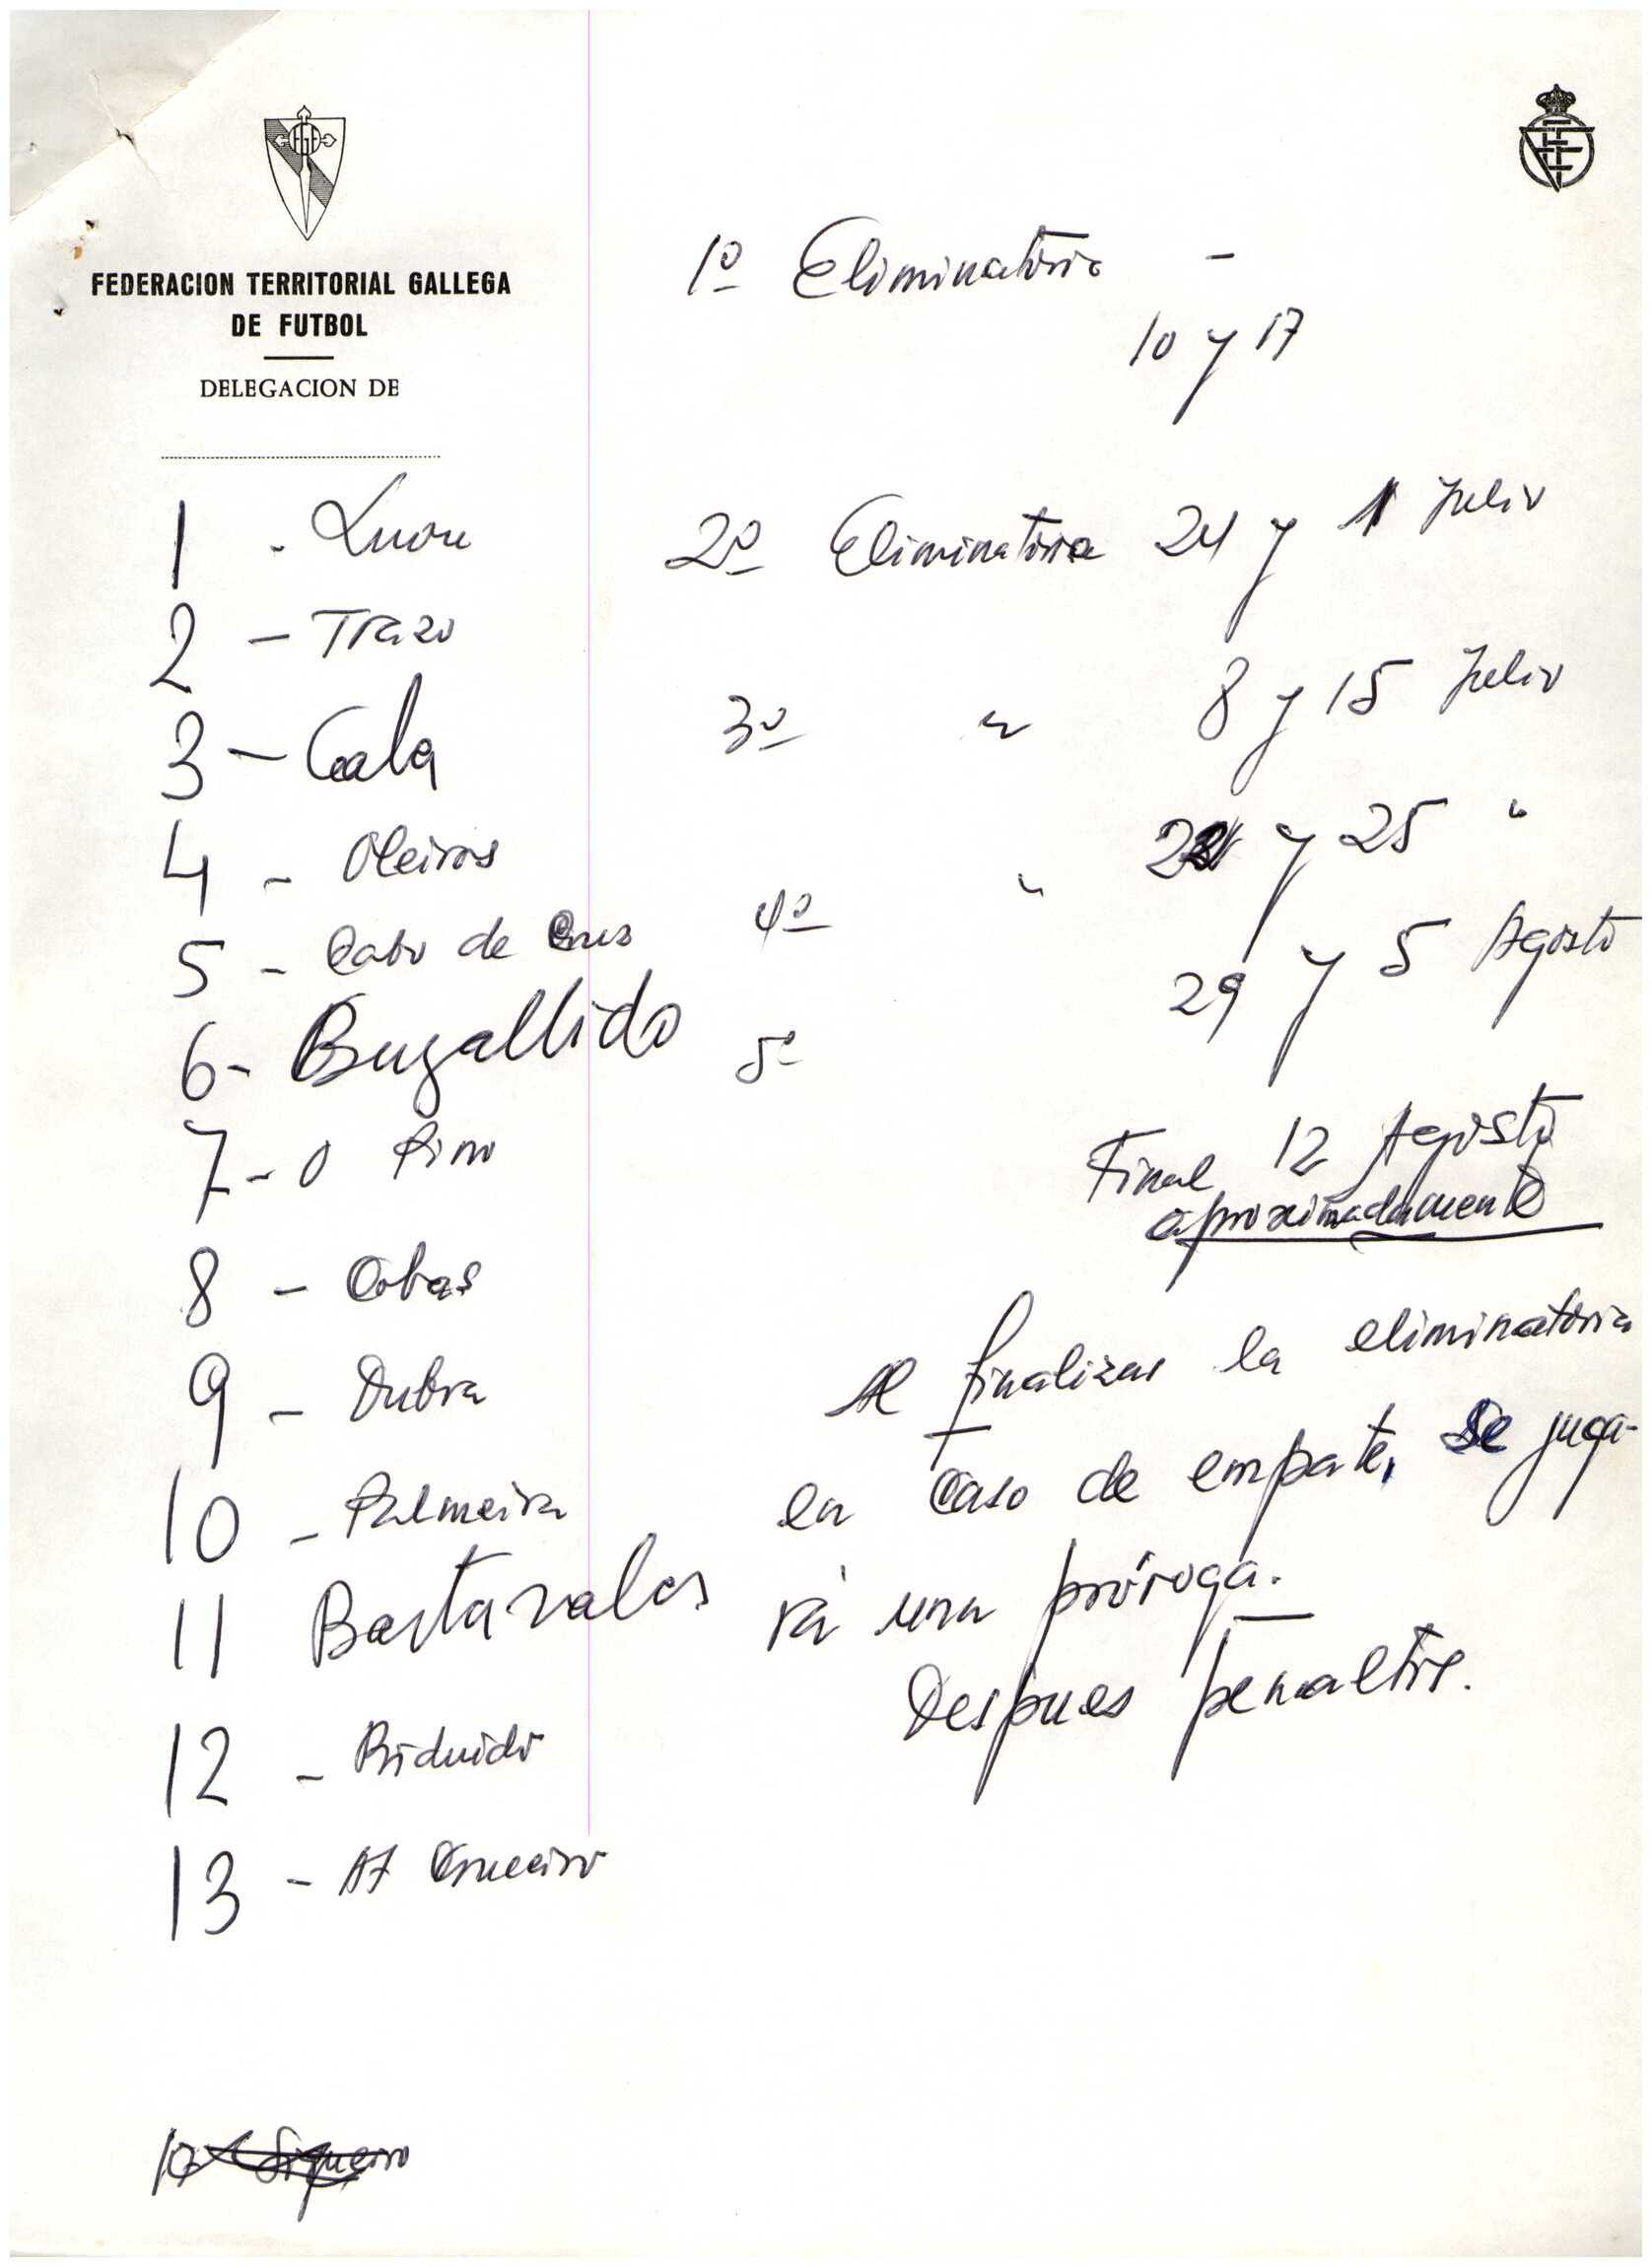 FEDERACION TERRITORIAL GALLEGA
DE FUTBOL
DELEGACION DE
1º Eliminatoria -
10 y 17
1 - Luou
2 - Trazo
3 - Cala
4 - Oleiros
5 - Cabo de Cruz
6 - Bugallido
7 - O Pino
8 - Cobas
9 - Dubra
10 - Palmeira
11 Bastavales
12 - Biduido
13 - At Cruceiro
Sigueiro
2º Eliminatoria 24 y 1 Julio
3º " 8 y 15 Julio
4º " y 25 "
5º 29 y 5 Agosto
Final 12 Agosto
aproximadamente
Al finalizar la eliminatoria
en caso de empate, se juga-
rá una próroga.
Despues penaltis.